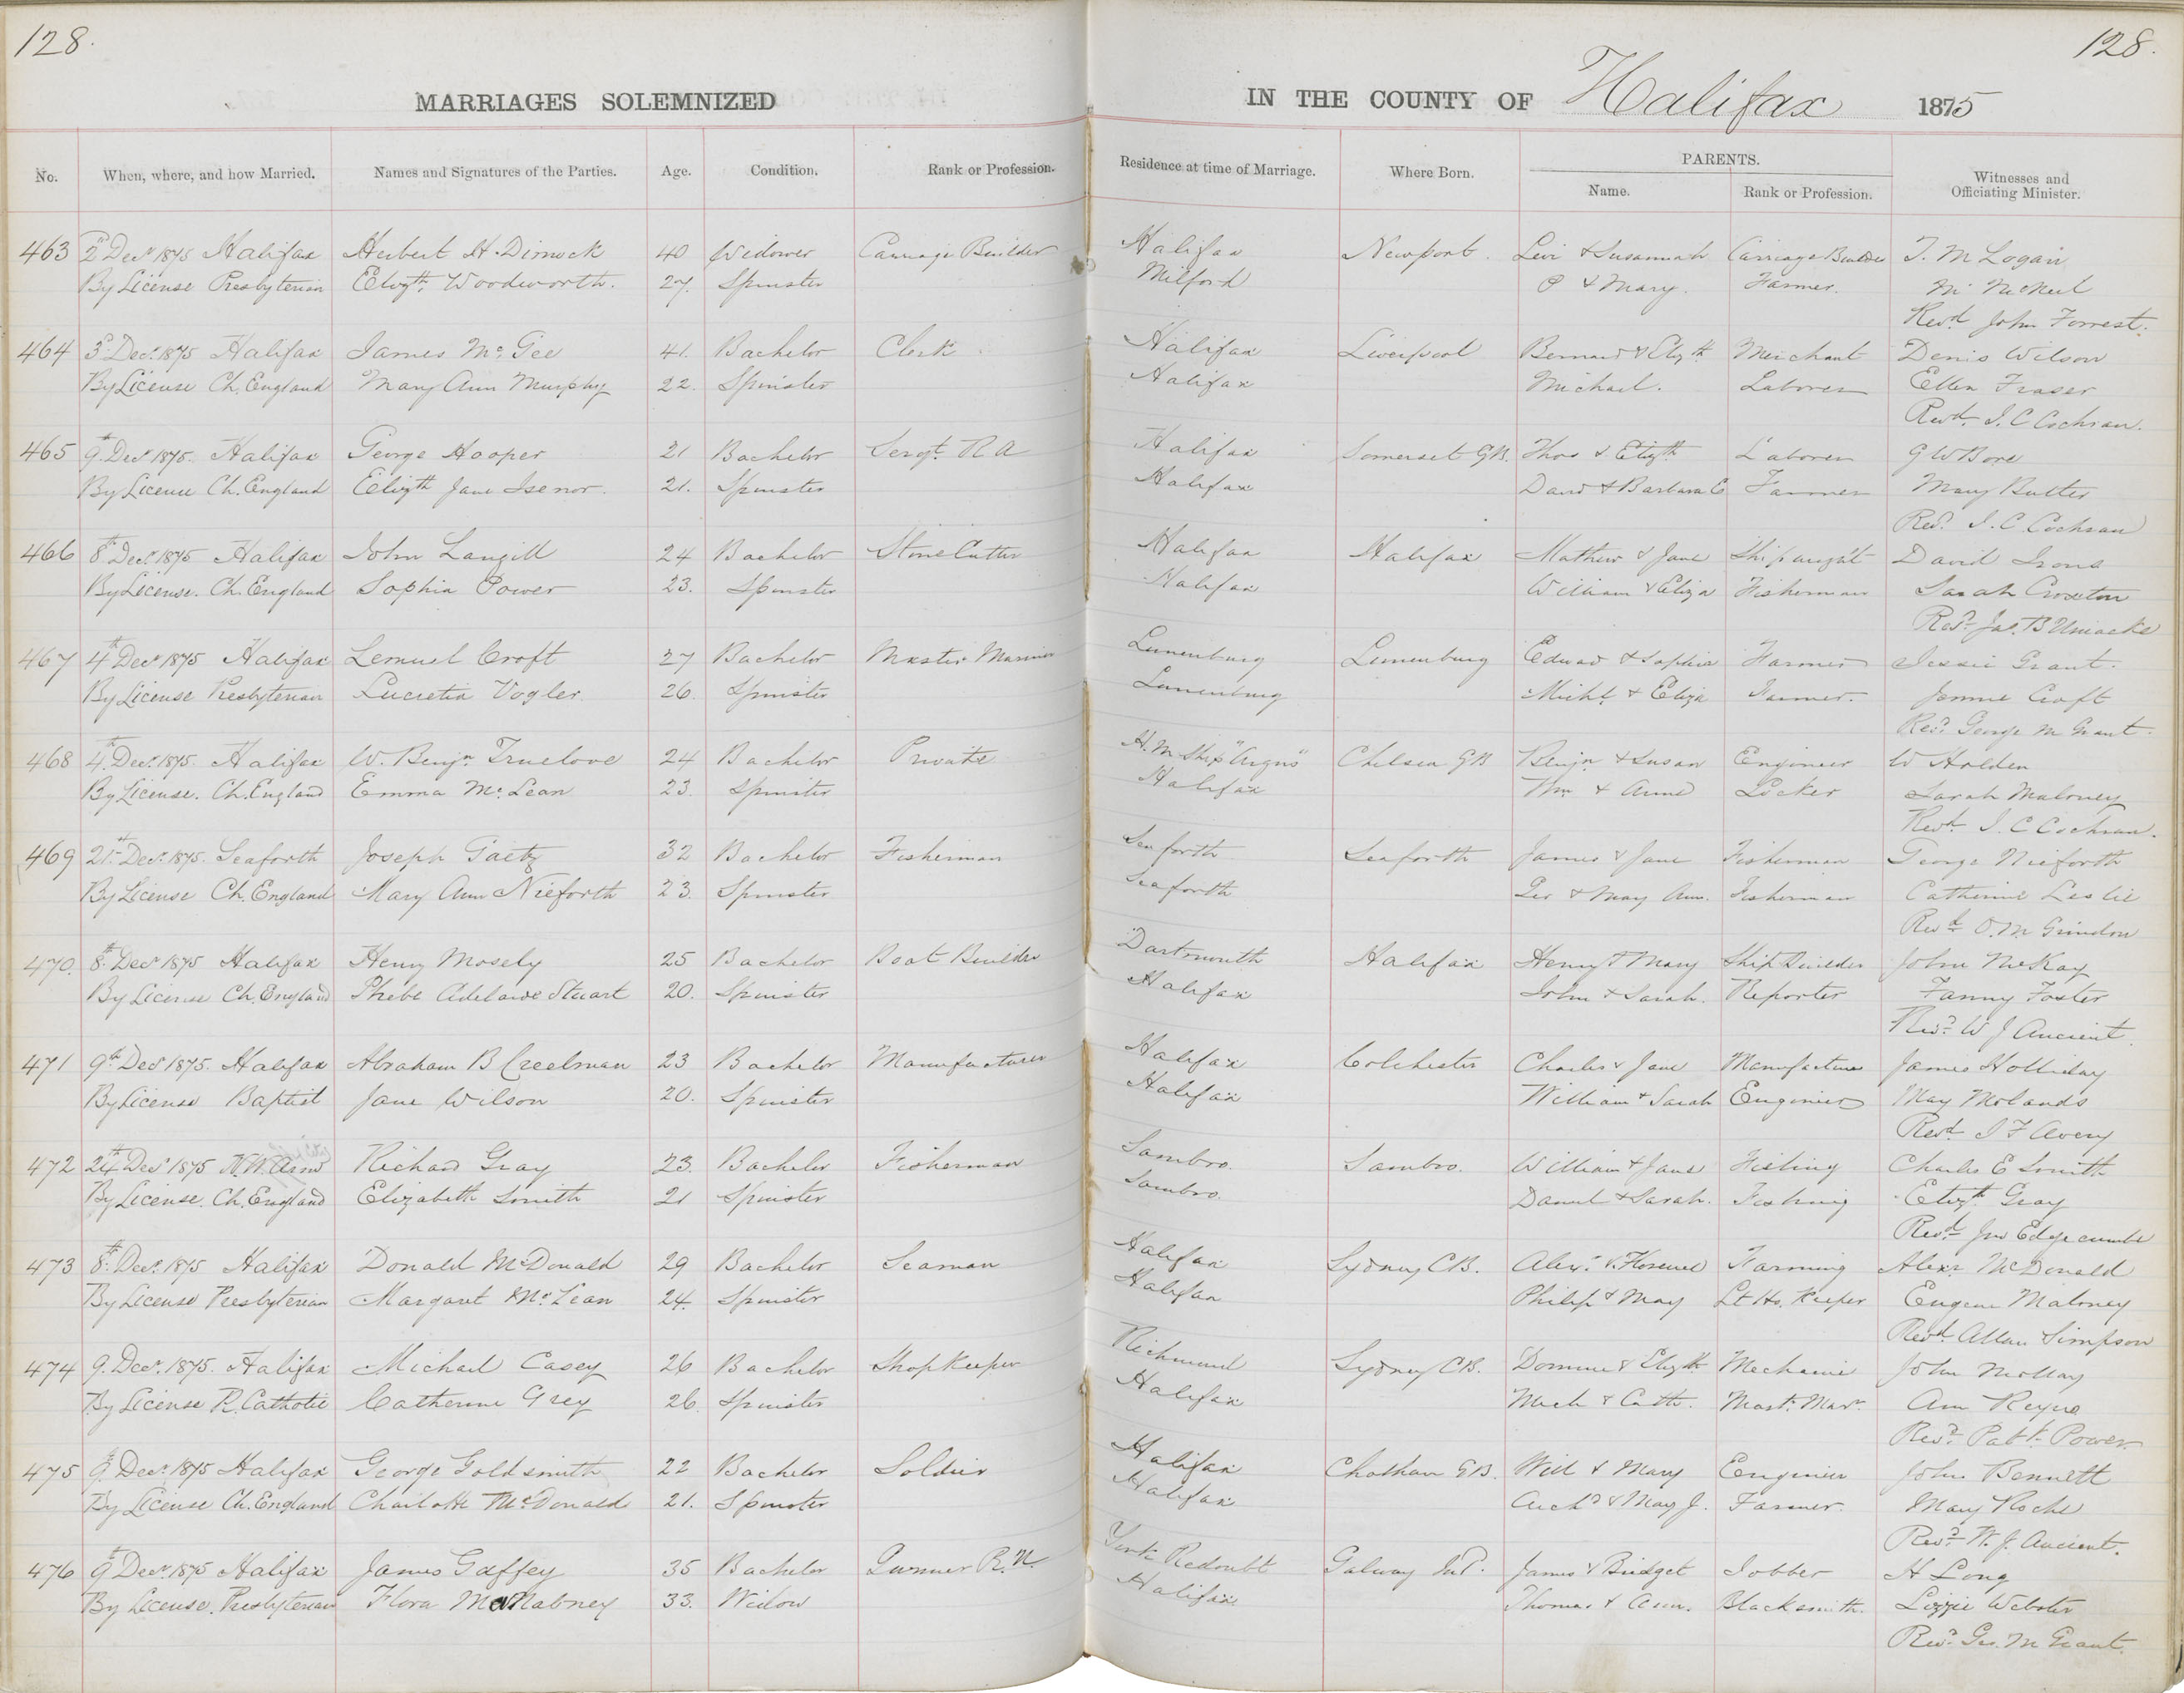 128.
128.
MARRIAGES SOLEMNIZED
IN THE COUNTY OF Halifax 1875
No. When, where, and how Married. Names and Signatures of the Parties. Age. Condition. Rank or Profession. Residence at time of Marriage. Where Born. PARENTS. Name. Rank or Profession. Witnesses and Officiating Minister.
463 2nd Decr 1875 Halifax Herbert H. Dimock 40 Widower Carriage Builder Halifax Newport. Levi & Susannah Carriage Builder T. M Logan
By License Presbyterian Elizth Woodworth. 27. Spinster Milford P & Mary. Farmer. M McNeil
Revd John Forrest.
464 3d Decr 1875 Halifax James McGee 41. Bachelor Clerk Halifax Liverpool Bernard & Elizth Merchant Denis Wilson
By License Ch. England Mary Ann Murphy 22. Spinster Halifax Michael. Laborer Ellen Fraser
Revd. J. C Cochran.
465 9th Decr 1875. Halifax George Hooper 21 Bachelor Sergt. R A Halifax Somerset G.B. Thos & Elizth Laborer G W Bore
By License Ch. England Elizth Jane Isenor. 21. Spinster Halifax David & Barbara C Farmer Mary Butler
Revd. J. C Cochran
466 8th Decr 1875 Halifax John Langill 24 Bachelor Stone Cutter Halifax Halifax Mathew & Jane Shipwright David Irons
By License. Ch. England Sophia Power 23. Spinster Halifax William & Eliza Fisherman Sarah Croxton
Revd Jas. B Uniacke
467 4th Decr 1875 Halifax Lemuel Croft 27 Bachelor Master Mariner Lunenburg Lunenburg Edward & Sophia Farmer Jessie Grant.
By License Presbyterian Lucretia Vogler. 26. Spinster Lunenburg Michl. & Eliza Farmer. Jennie Croft
Revd. George M Grant.
468 4th Decr. 1875. Halifax W. Benjn Truelove 24 Bachelor Private H. M Ship "Argus" Chelsea G B Benjn & Susan Engineer W Holden
By License. Ch. England Emma McLean 23. Spinster Halifax Wm & Anne Locker Sarah Maloney
Revd. J. C Cochran.
469 21st Decr. 1875. Seaforth Joseph Gaetz 32 Bachelor Fisherman Seaforth Seaforth James & Jane Fisherman George Nieforth
By License Ch. England Mary Ann Nieforth 23. Spinster Seaforth Geo & Mary Ann. Fisherman Catherine Leslie
Revd O. M. Grindon
470 8th Decr 1875 Halifax Henry Mosely 25 Bachelor Boat Builder Dartmouth Halifax Henry & Mary Ship Builder John McKay
By License Ch. England Phebe Adelaide Stuart 20. Spinster Halifax John & Sarah. Reporter Fanny Foster
Revd. W J Ancient.
471 9th Decr 1875. Halifax Abraham B Creelman 23 Bachelor Manufacturer Halifax Colchester Charles & Jane Manufacturer James Holliday
By License Baptist Jane Wilson 20. Spinster Halifax William & Sarah Engineer May
Revd J F Avery
472 24th Decr 1875 N. W. Arm Richard Gray 23. Bachelor Fisherman Sambro. Sambro. William & Jane Fishing Charles E Smith
By License. Ch. England Elizabeth Smith 21 Spinster Sambro. Daniel & Sarah. Fishing Elizth Gray
Revd Jno Edgecumbe
473 8th Decr 1875 Halifax Donald McDonald 29 Bachelor Seaman Halifax Sydney C.B. Alexr. & Florence Farming Alexr McDonald
By License Presbyterian Margaret McLean 24. Spinster Halifax Philip & Mary Lt Ho. Keeper Eugene Maloney
Revd Allan Simpson
474 9. Decr. 1875. Halifax Michael Casey 26 Bachelor Shop Keeper Richmond Sydney C.B. & Elizth Mechanic John
By License R. Catholic Catherine Grey 26. Spinster Halifax Mich & Cath. Mastr. Marr. Ann
Revd. Patk. Power
475 9th Decr 1875 Halifax George Goldsmith 22 Bachelor Soldier Halifax Chatham G.B. Will & Mary Engineer John Bennett
By License Ch. England Charlotte McDonald 21. Spinster Halifax Archd & Mary J. Farmer. Mary Roche
Revd. W. J. Ancient.
476 9th Decr 1875 Halifax James Gaffey 35 Bachelor Gunner R. N. York Redoubt Galway Ird. James & Bridget Jobber H Long
By License. Presbyterian Flora McNabney 33. Widow Halifax Thomas & Ann. Blacksmith. Lizzie Webster
Revd. Geo. M Grant.